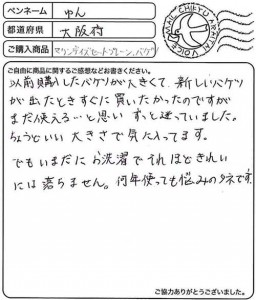 ペンネーム ゆん
都道府県 大阪府
ご購入商品 マリンデイズセットプレーン、バケツ
ご自由に商品に関するご感想などお書きください。
以前購入したバケツが大きくて、新しいバケツ
が出たときすぐに買いたかったのですが
まだ使える…と思い ずっと迷っていました。
ちょうどいい 大きさで気に入ってます。
でもいまだに お洗濯でそれほどきれい
には落ちません。何年使っても悩みのタネです。
ご協力ありがとうございました。